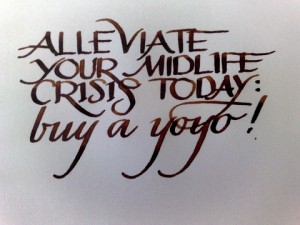 ALLEVIATE
YOUR MIDLIFE
CRISIS TODAY:
buy a yoyo!